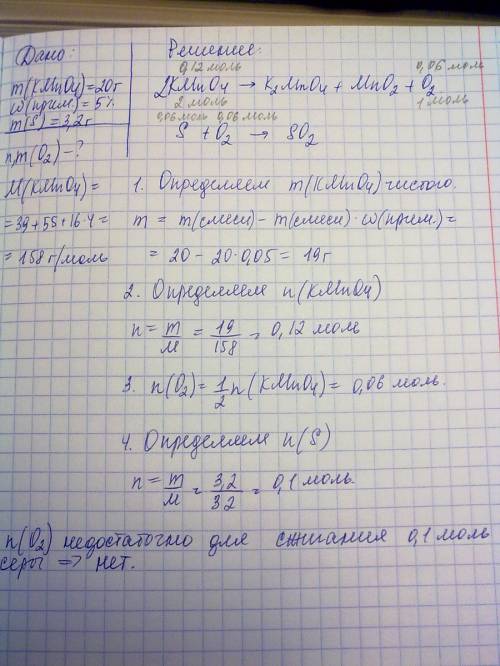 Дано:
m(KMnO4)=20г
ω(прим.)=5%
m(S)=3,2г
n,m(O2)-?
M(KMnO4)=
=39+55+16·4=
=158г/моль
Решение:
0,12 моль 0,06 моль
2KMnO4 → K2MnO4 + MnO2 + O2
2 моль 1 моль
0,06 моль 0,06 моль
S + O2 → SO2
1. Определяем m(KMnO4) чистого.
m = m(смеси) - m(смеси)·ω(прим.)=
= 20 - 20·0,05 = 19г
2. Определяем n(KMnO4)
n = m/M = 19/158 = 0,12 моль
3. n(O2)= 1/2 n(KMnO4)= 0,06 моль.
4. Определяем n(S)
n = m/M = 3,2/32 = 0,1 моль.
n(O2) недостаточно для сжигания 0,1 моль
серы => нет.